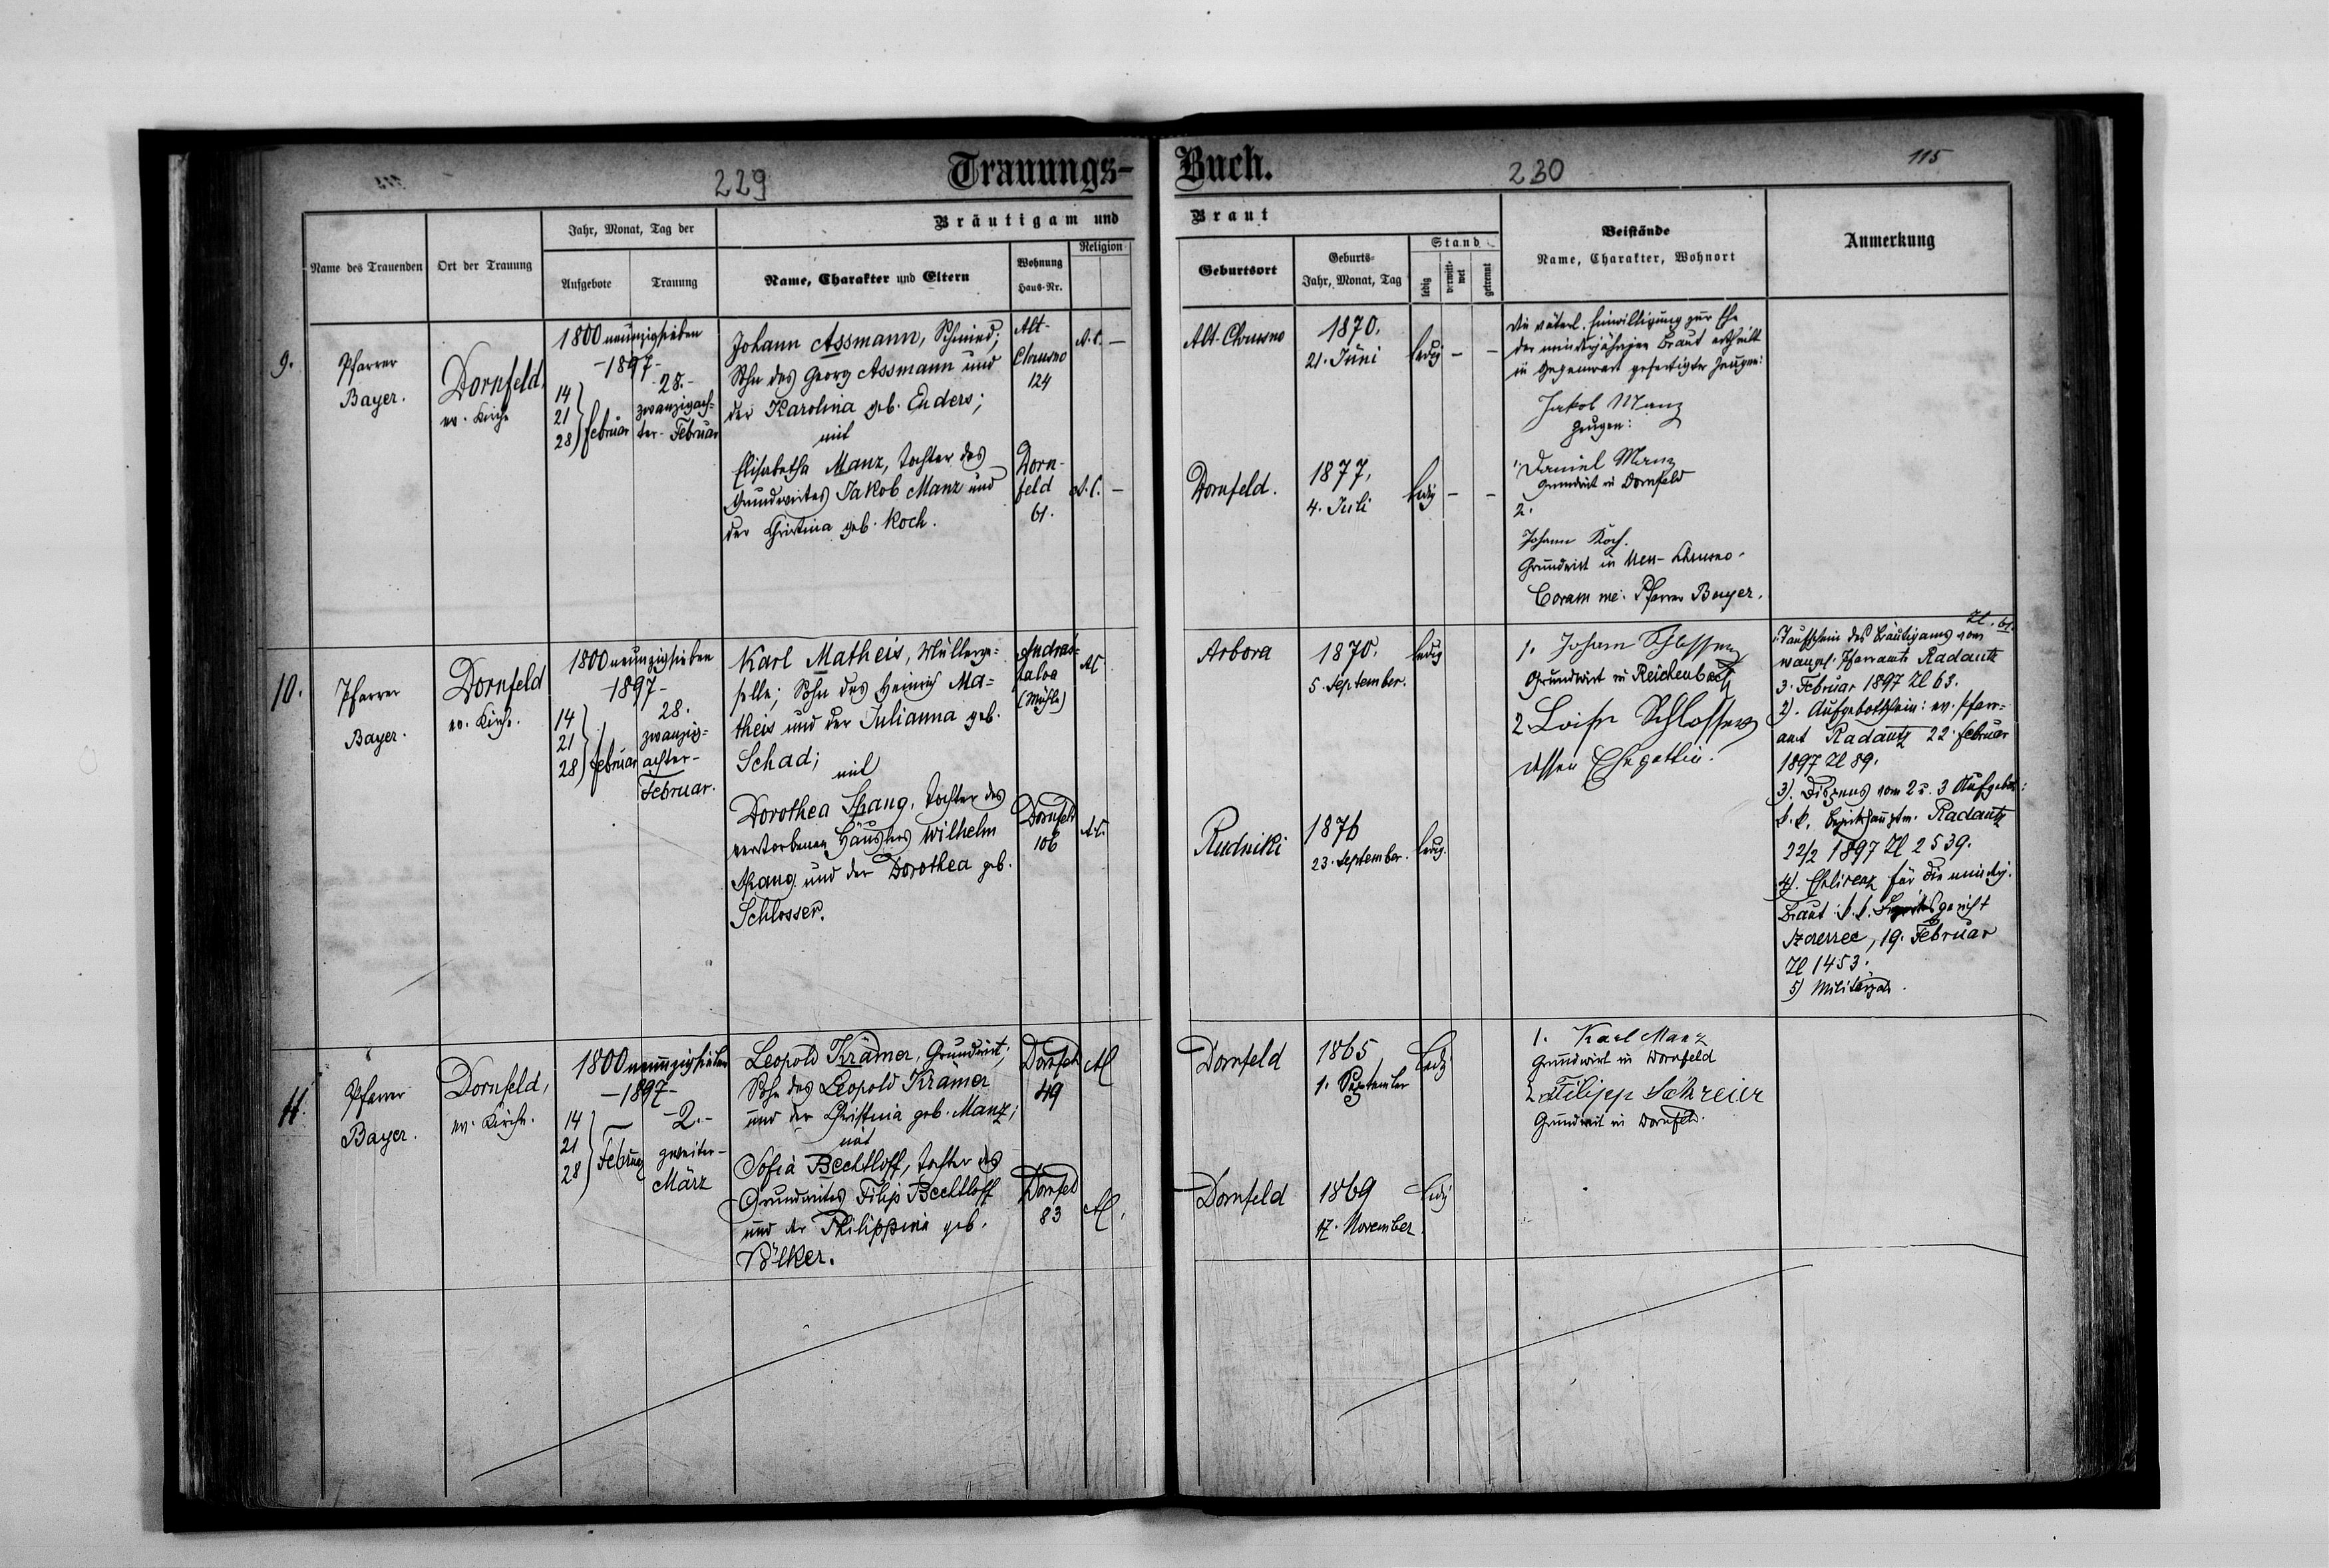 229
Trauungs-
Buch.
230
115
Name des Trauenden
Ort der Trauung
Jahr, Monat, Tag der
Aufgebote
Trauung
Bräutigam und
Braut
Name, Charakter und Eltern
Wohnung
Haus-Nr.
Religion
Geburtsort
Geburts-
Jahr, Monat, Tag
Stand
ledig
verwitt-
wet
getrennt
Beistände
Name, Charakter, Wohnort
Anmerkung
9.
Pfarrer
Bayer.
Dornfeld,
ev. Kirche
1800 neunzigsieben
-1897-
14
21
28) Februar
-28.-
zwanzigach-
ter- Februar
Johann Assmann, Schmied;
Sohn des Georg Assmann und
der Karolina geb. Enders;
mit
Elisabetha Manz, Tochter des
Grundwirtes Jakob Manz und
der Christina geb. Koch.
Alt-
Chrusno
124
A.C. -
Dorn-
feld
61.
A.C. -
Alt-Chrusno
1870.
21. Juni
ledig - -
Dornfeld.
1877,
4. Juli
ledig - -
Die väterl. Einwilligung zur Ehe
der minderjährigen Braut ertheilt
in Gegenwart gefertigter Zeugen:
Jakob Manz
Zeugen:
1 Daniel Manz
Grundwirt in Dornfeld
2.
Johann Koch.
Grundwirt in Neu-Chrusno.
Coram me: Pfarrer Bayer.
10.
Pfarrer
Bayer.
Dornfeld
ev. Kirche.
1800 neunzigsieben
-1897-
14
21
28) Februar
28.
zwanzig-
achter-
Februar.
Karl Matheis, Müllerge-
selle; Sohn des Heinrich Ma-
theis und der Julianna geb.
Schad;
mit
Dorothea Spang, Tochter des
verstorbenen Häuslers Wilhelm
Spang und der Dorothea geb.
Schlosser.
Andras-
falva
(Mühle)
AC
Dornfeld
106
A.C.
Arbora
1870.
5. September.
ledig
Rudniki
1876
23. September.
ledig.
1. Johann Schlosser
Grundwirt in Reichenbach
2 Loise Schlosser
dessen Ehegattin.
Zl. 61.
1. Taufschein des Bräutigams vom
evangl. Pfarramte Radautz
3. Februar 1897 Zl 63.
2). Aufgebotschein: ev. Pfarr-
amt Radautz 22. Februar
1897 Zl 89.
3). Dispens vom 2 u. 3 Aufgebot:
k.k. Bezirkshauptm. Radautz
22/2 1897 Zl 2539.
4). Ehelizenz für die mindj.
Braut: k.k. Bezirksgericht
Szczerzec, 19. Februar
Zl 1453.
5) Militärpass.
11.
Pfarrer
Bayer.
Dornfeld,
ev. Kirche.
1800 neunzigsieben
-1897-
14
21
28) Februar
-2.-
zweiter-
März
Leopold Krämer, Grundwirt;
Sohn des Leopold Krämer
und der Christina geb. Manz;
mit
Sofia Bechtloff, Tochter des
Grundwirtes Filip Bechtloff
und der Philippina geb.
Völker.
Dornfeld
49
AC
Dornfeld
83
AC.
Dornfeld
1865
1. September
Ledig
Dornfeld
1869
17. November
Ledig
1. Karl Manz
Grundwirt in Dornfeld
2 Filipp Schreier
Grundwirt in Dornfeld.